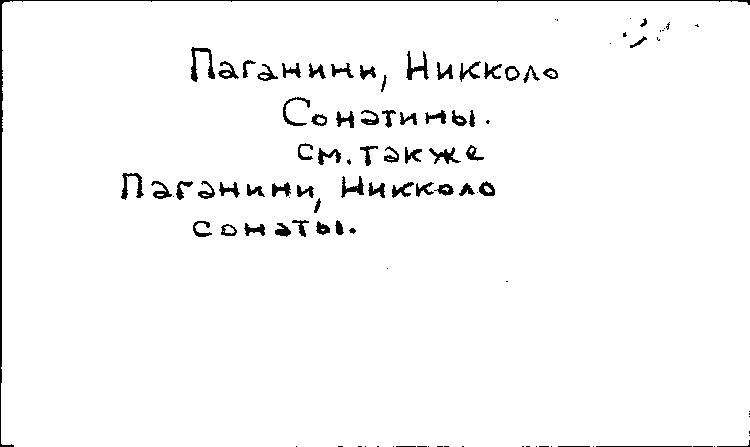 Паганини, Никколо
Сонатины.
см. также
Паганини, Никколо
сонаты.